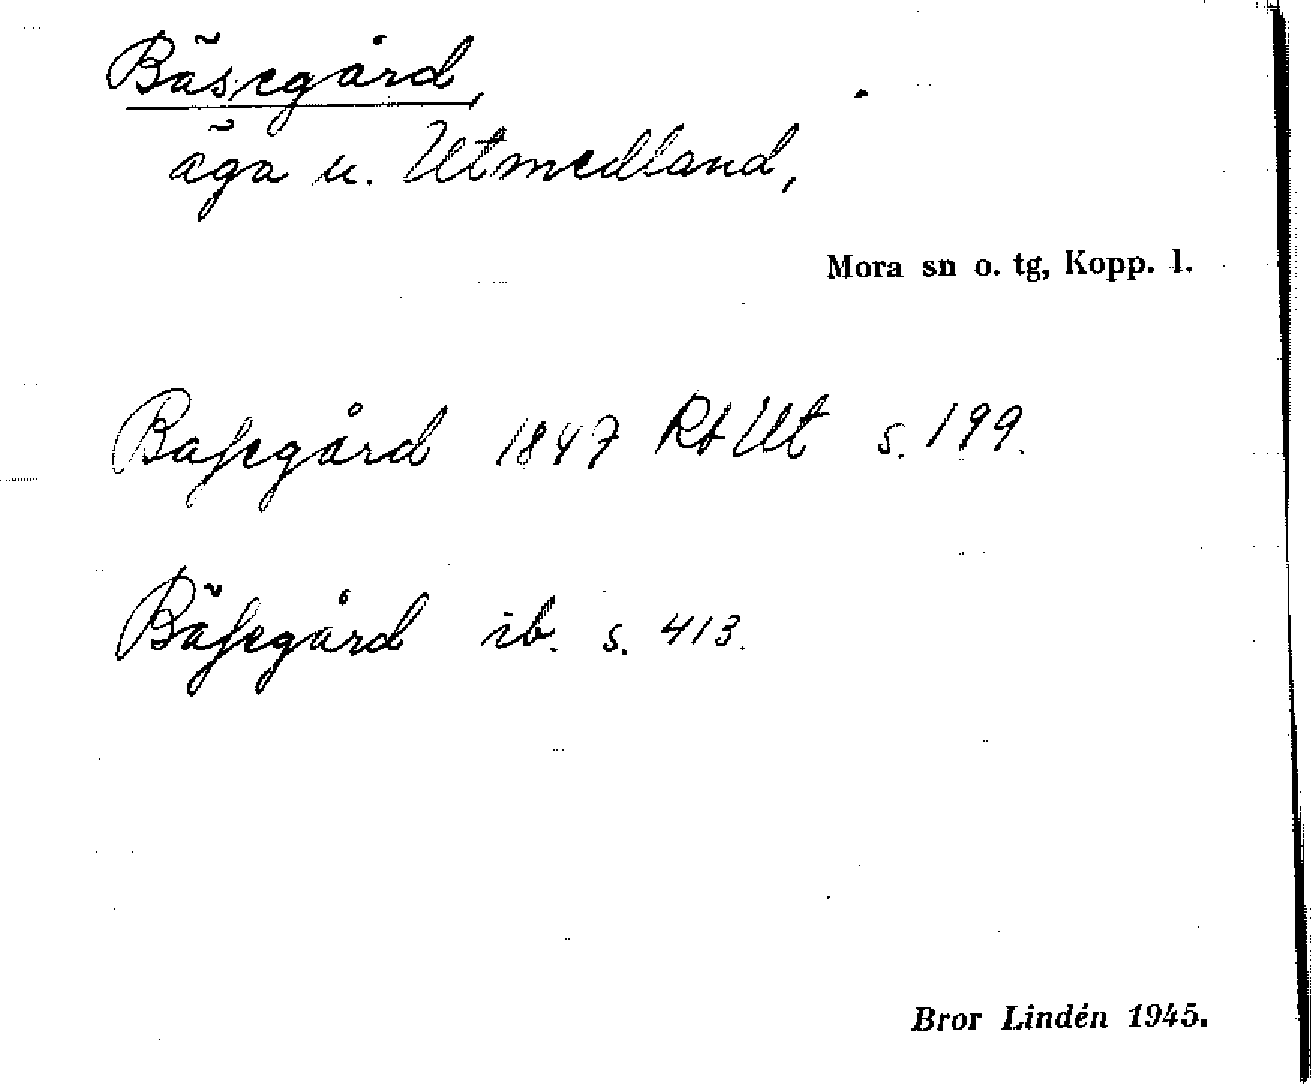 Bäsegård,
äga u. Utmedland,
Mora sn o. tg, Kopp. l.
Basegård 1847 RtUt s. 199.
Bäsegård ib. s. 413.
Bror Lindén 1945.